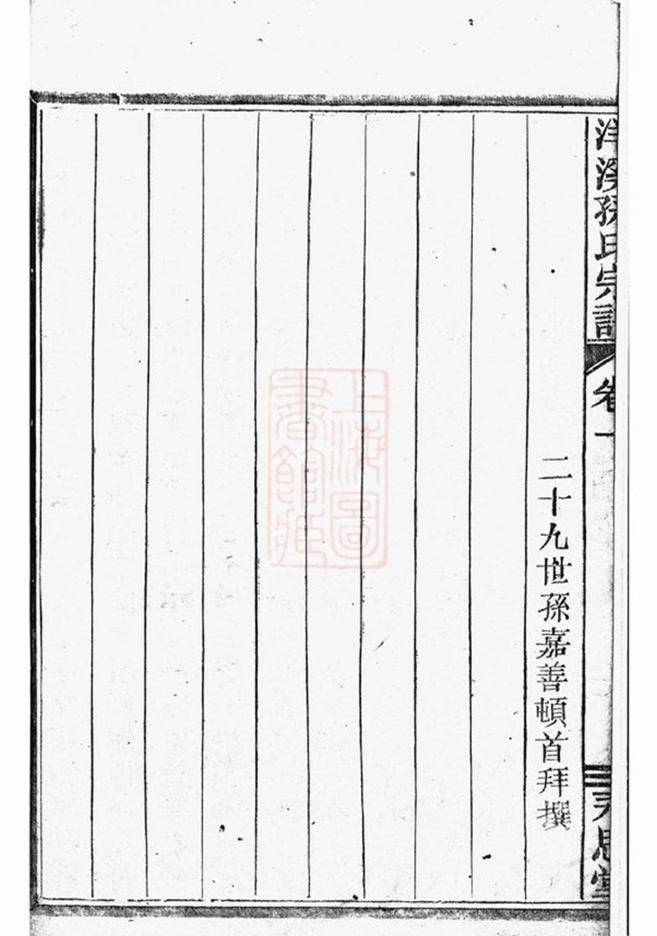 洋溪孫氏宗譜
卷一
二十九世孫嘉善頓首拜撰
永思堂
上海圖書館藏